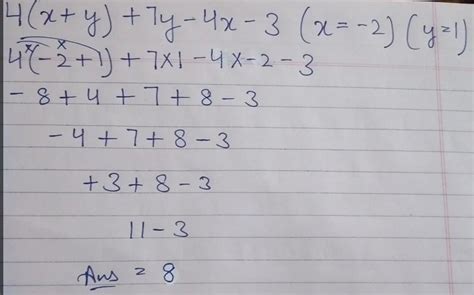 4(x+y)+7y-4x-3 (x=-2) (y=1)
4(-2+1)+7×1-4×-2-3
-8+4+7+8-3
-4+7+8-3
+3+8-3
11-3
Ans = 8